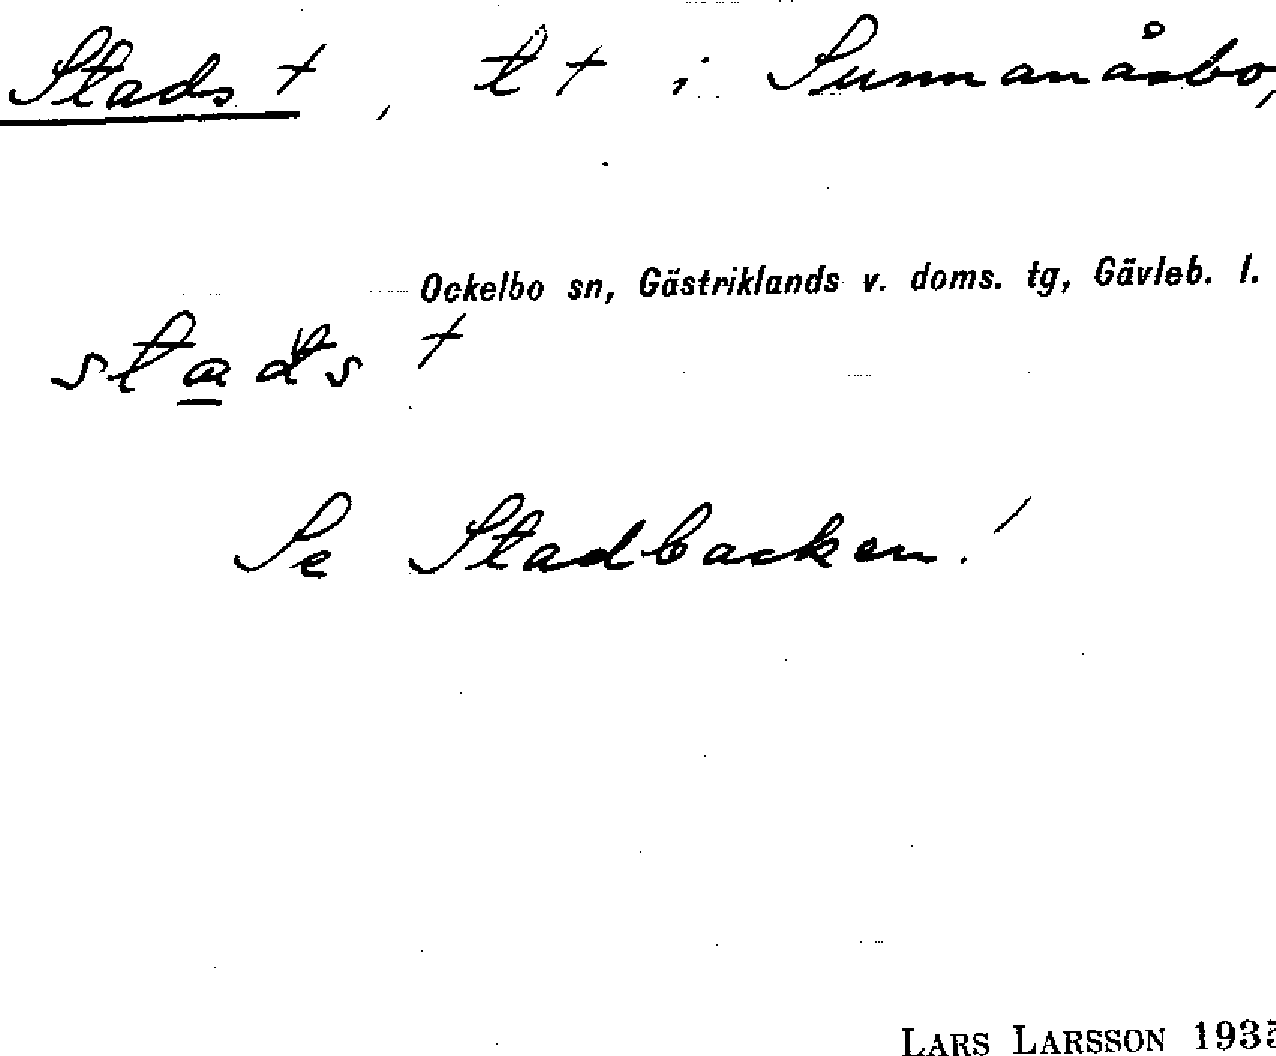 Stads +, t + i Sunnanåsbo,
Ockelbo sn, Gästriklands v. doms. tg, Gävleb. l.
stads +
Se Stadbacken!
LARS LARSSON 1935